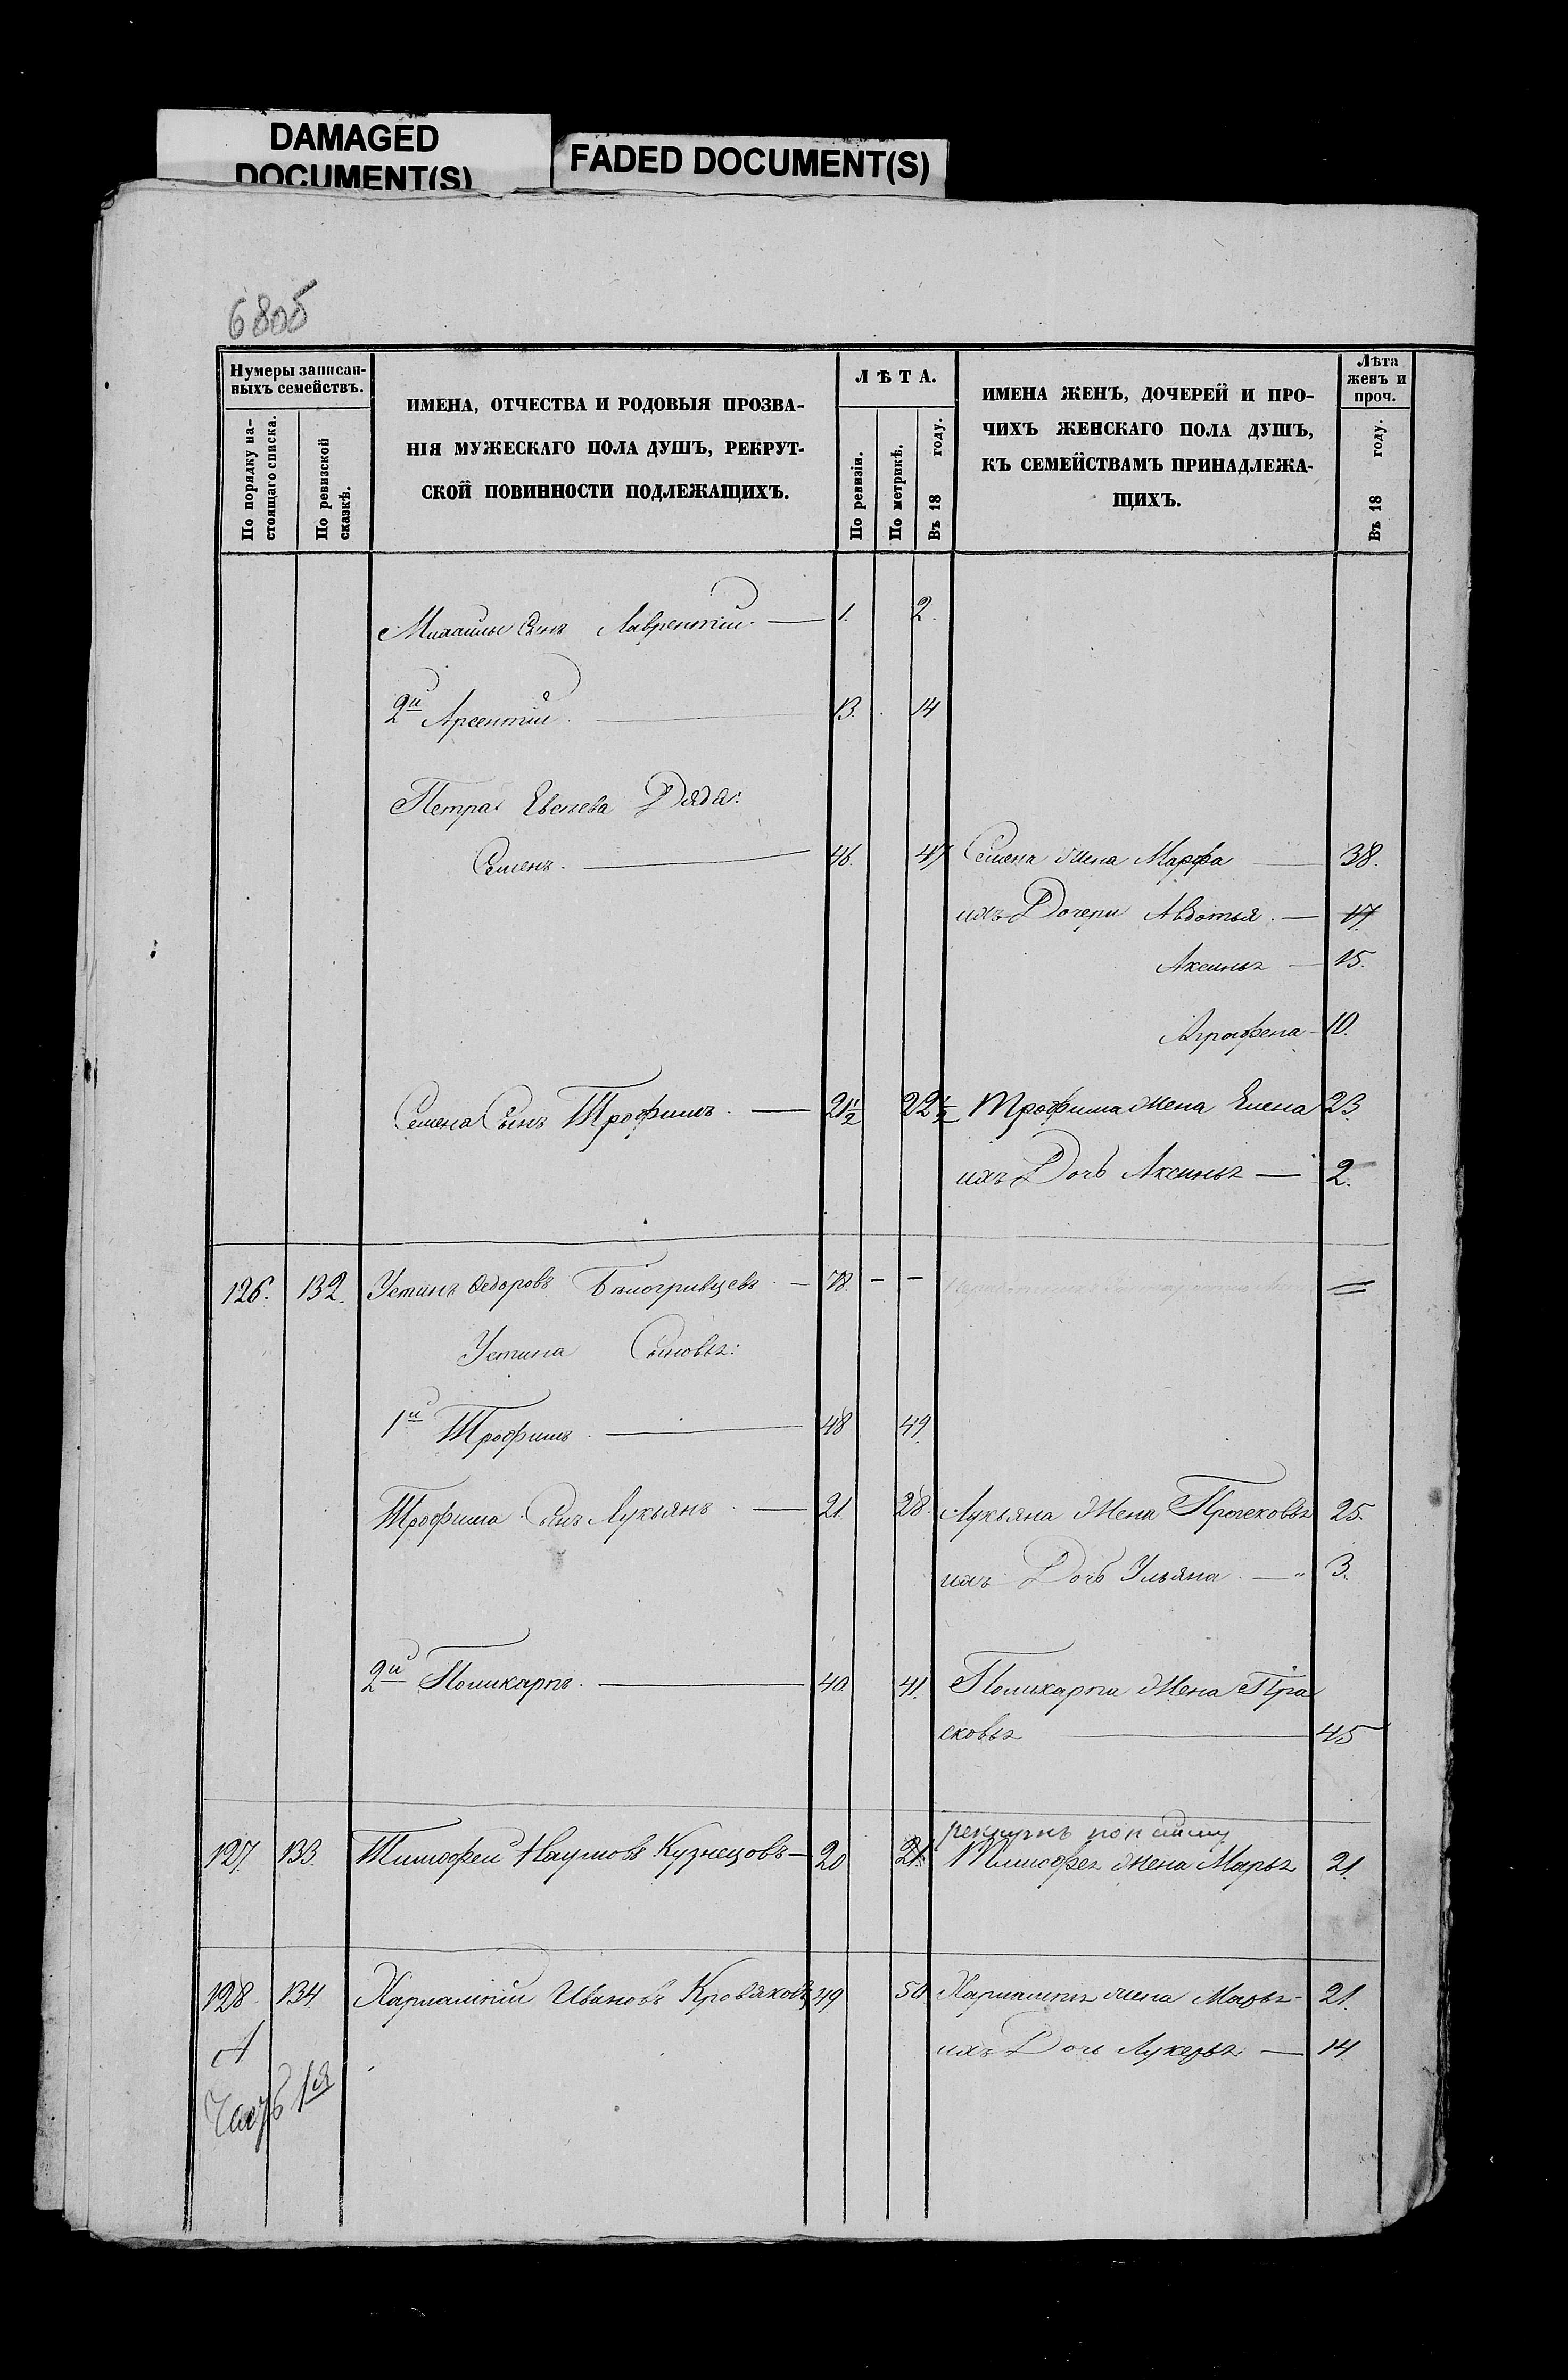 DAMAGED
DOCUMENT(S)
FADED DOCUMENT(S)
6805
Нумеры записан-
ныхъ семействъ.
По порядку на-
стоящаго списка.
По ревизской
сказкѣ.
ИМЕНА, ОТЧЕСТВА И РОДОВЫЯ ПРОЗВА-
НІЯ МУЖЕСКАГО ПОЛА ДУШЪ, РЕКРУТ-
СКОЙ ПОВИННОСТИ ПОДЛЕЖАЩИХЪ.
ЛѢТА.
По ревизіи.
По метрикѣ.
Въ 18 году.
ИМЕНА ЖЕНЪ, ДОЧЕРЕЙ И ПРО-
ЧИХЪ ЖЕНСКАГО ПОЛА ДУШЪ,
КЪ СЕМЕЙСТВАМЪ ПРИНАДЛЕЖА-
ЩИХЪ.
Лѣта
женъ и
проч.
Въ 18 году.
Михаилы Сынъ Лаврентій — 1. 2.
2й Арсентій — 13. 14
Петра Дядя:
Семенъ — 46. 47 Семена жена Марфа 38.
ихъ Дочери Авдотья — 17.
Аксинья — 15.
Аграфена — 10.
Семена Сынъ Трофимъ — 21½ 22½ Трофима жена Елена 23
ихъ Дочь Аксинья — 2.
126. 132. Устинъ Федоровъ Бѣлогривцевъ — 78. – –
Устина Сыновья:
1й Трофимъ — 48 49.
Трофима Сынъ Лукьянъ — 21. 28. Лукьяна Жена 25.
ихъ Дочь Ульяна — 3.
2й Поликарпъ — 40. 41. Поликарпа Жена Пра
сковья — 45
127. 133. Тимофей Наумовъ Кузнецовъ — 20 21. Тимофея жена Марья 21.
128. 134. Харлампій Ивановъ Кровяковъ 49 50 Харлампія жена Марья 21.
ихъ Дочь Лукерья — 14
А
Часть 1я